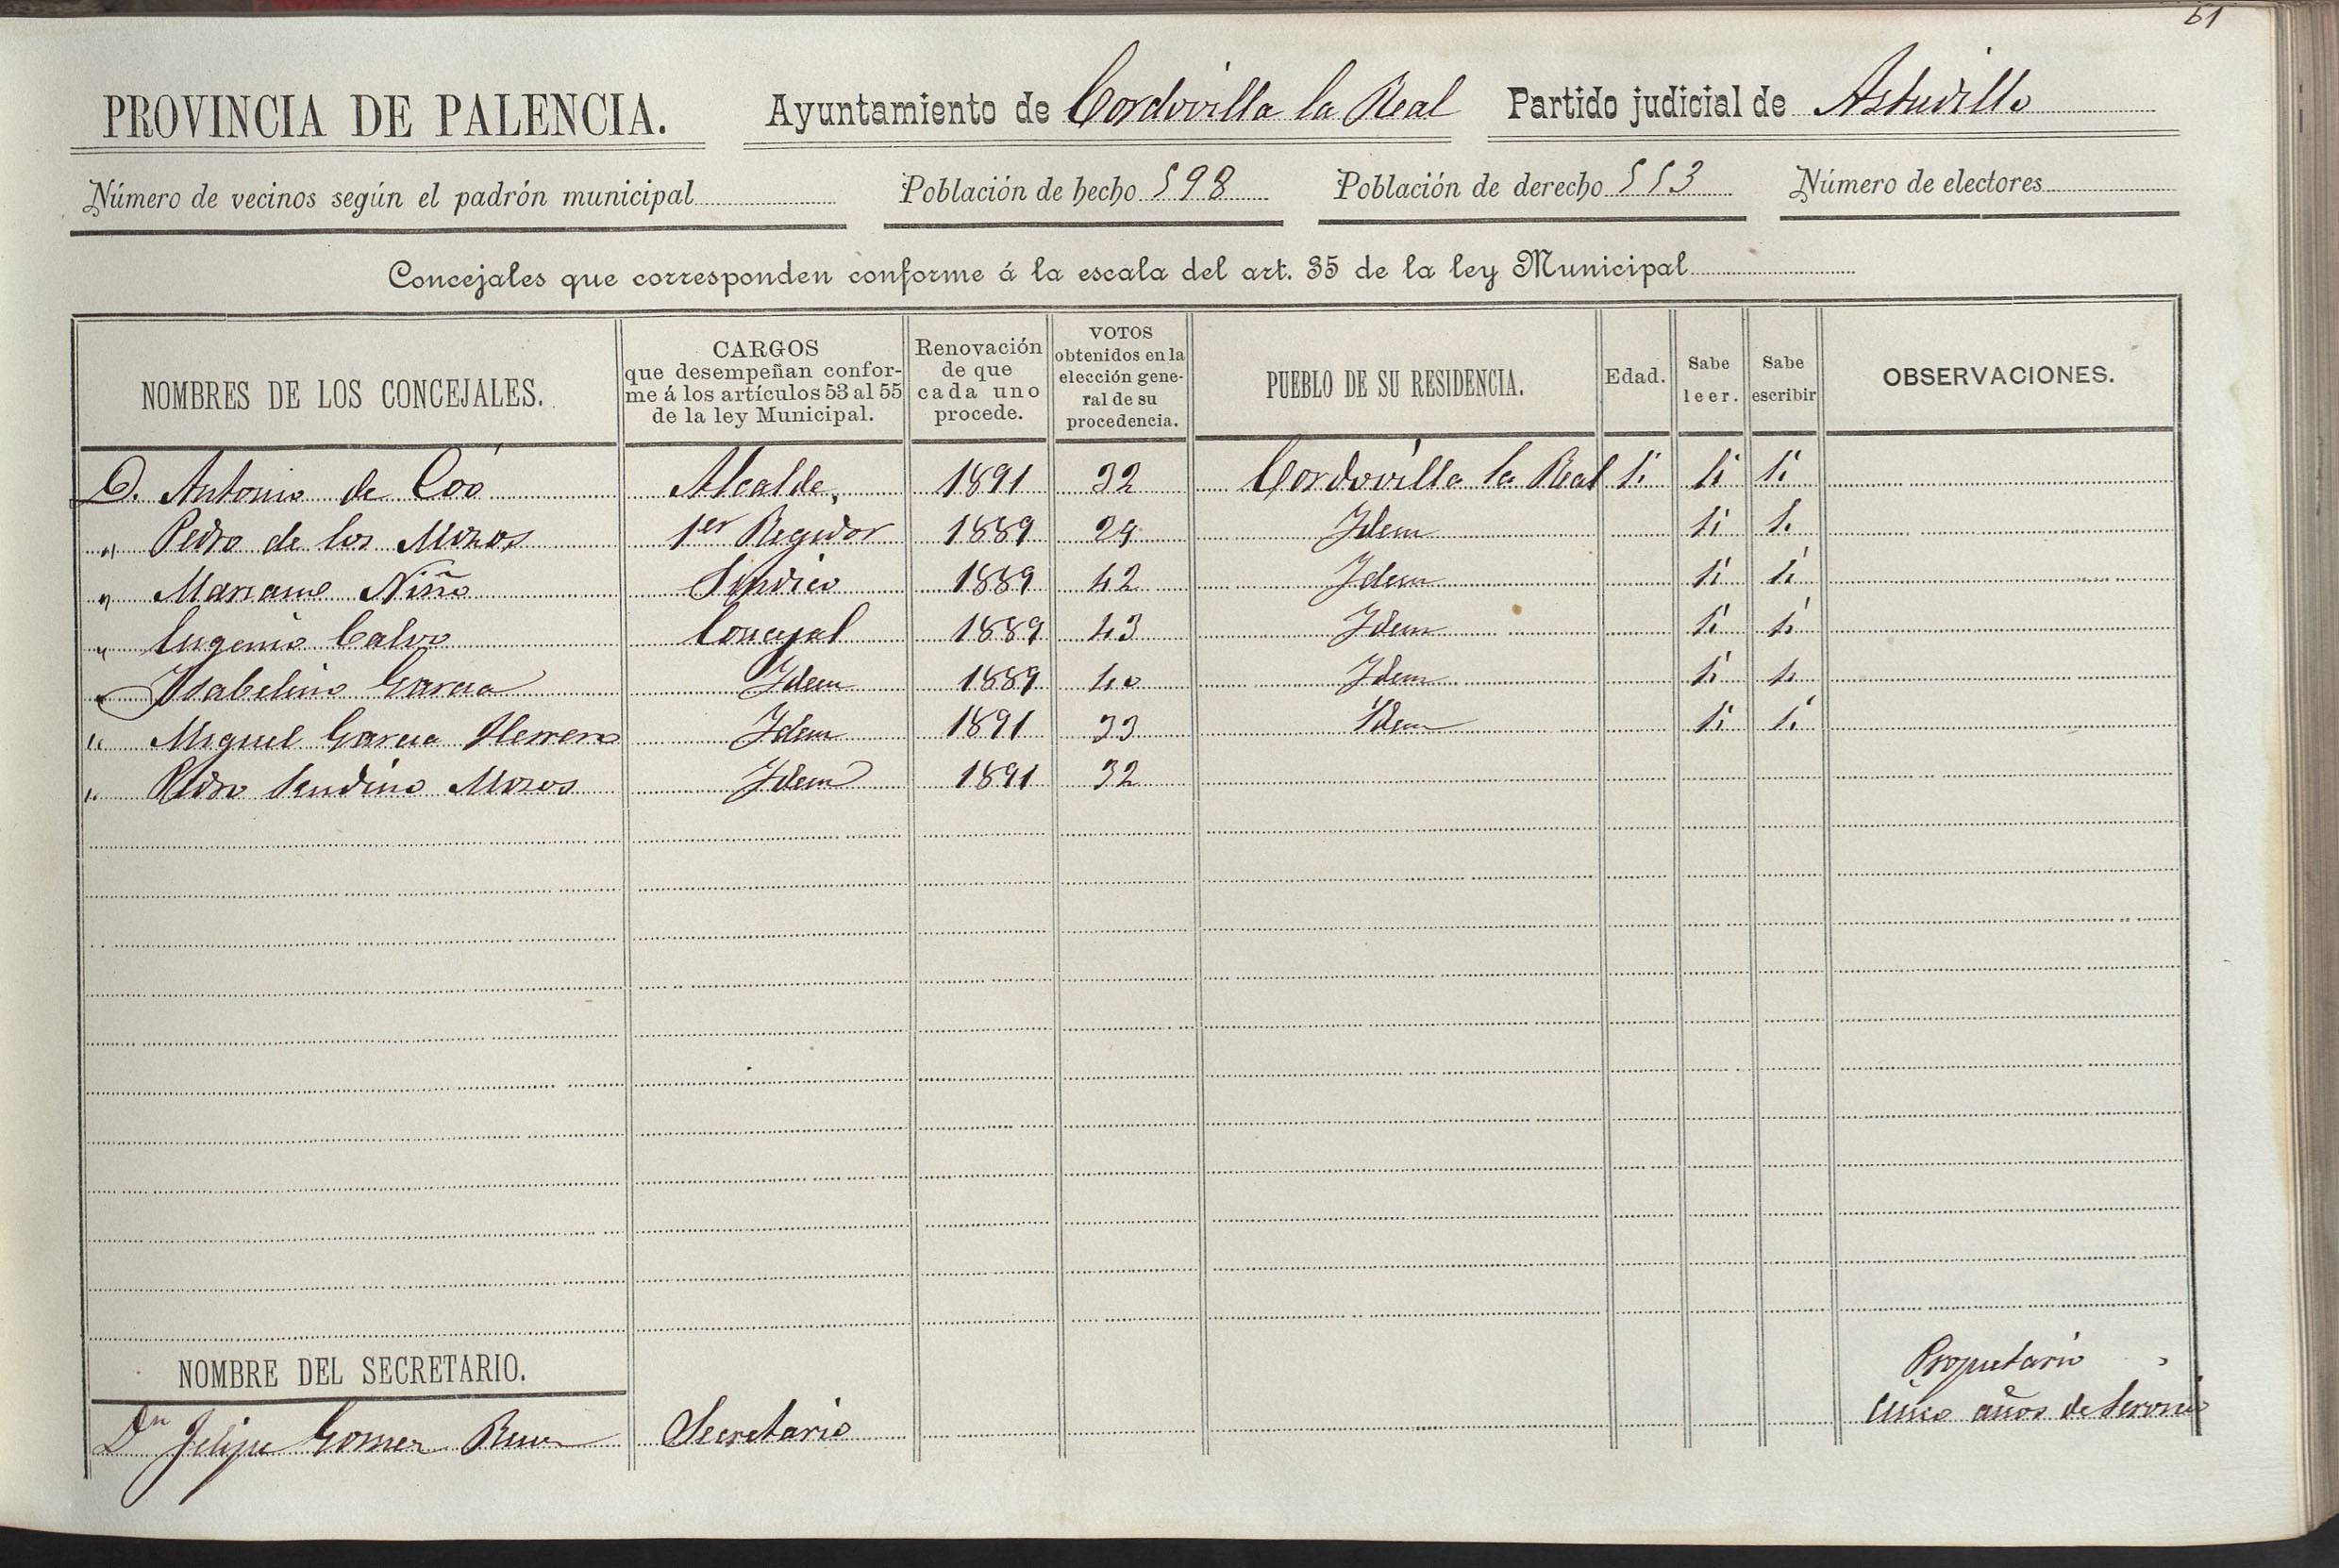 61
PROVINCIA DE PALENCIA. Ayuntamiento de Cordovilla la Real Partido judicial de Astudillo
Número de vecinos según el padrón municipal Población de hecho 598 Población de derecho 553 Número de electores
Concejales que corresponden conforme á la escala del art. 35 de la ley Municipal
NOMBRES DE LOS CONCEJALES.
CARGOS
que desempeñan confor-
me á los artículos 53 al 55
de la ley Municipal.
Renovación
de que
cada uno
procede.
VOTOS
obtenidos en la
elección gene-
ral de su
procedencia.
PUEBLO DE SU RESIDENCIA.
Edad.
Sabe
leer.
Sabe
escribir
OBSERVACIONES.
D. Antonio de Coó Alcalde, 1891 32 Cordovilla la Real si si si
" Pedro de los Mozos 1er Regidor 1889 29 Idem si si
" Niño Sindico 1889 42 Idem si si
" Eugenio Calvo Concejal 1889 43 Idem si si
" Isabelino Garcia Idem 1889 40 Idem si si
" Miguel Garcia Herrero Idem 1891 33 Idem si si
" Pedro Sendino Mozos Idem 1891 32
NOMBRE DEL SECRETARIO.
Propietario
Dn Felipe Gomez Secretario Cinco años de Servicio